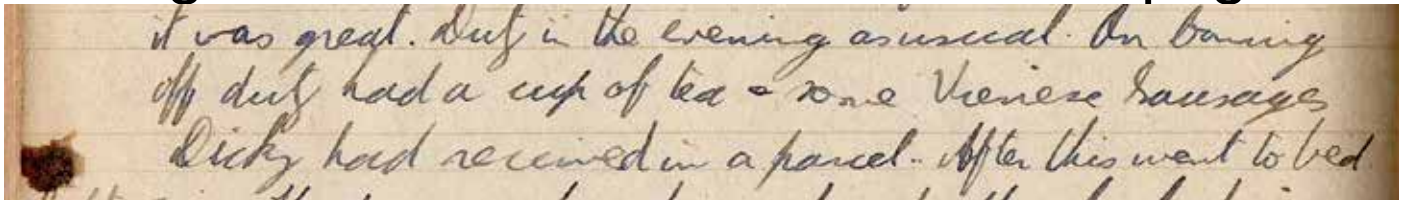 it was great. Duty in the evening as usual. On coming
off duty had a cup of tea & some Vienese Sausages
Dicky had received in a parcel. After this went to bed